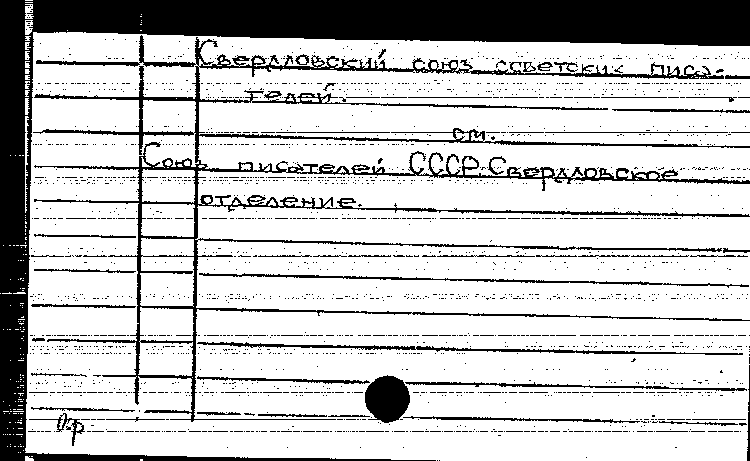 Свердловский союз советских писа-
телей.
см.
Союз писателей СССР. Свердловское
отделение.